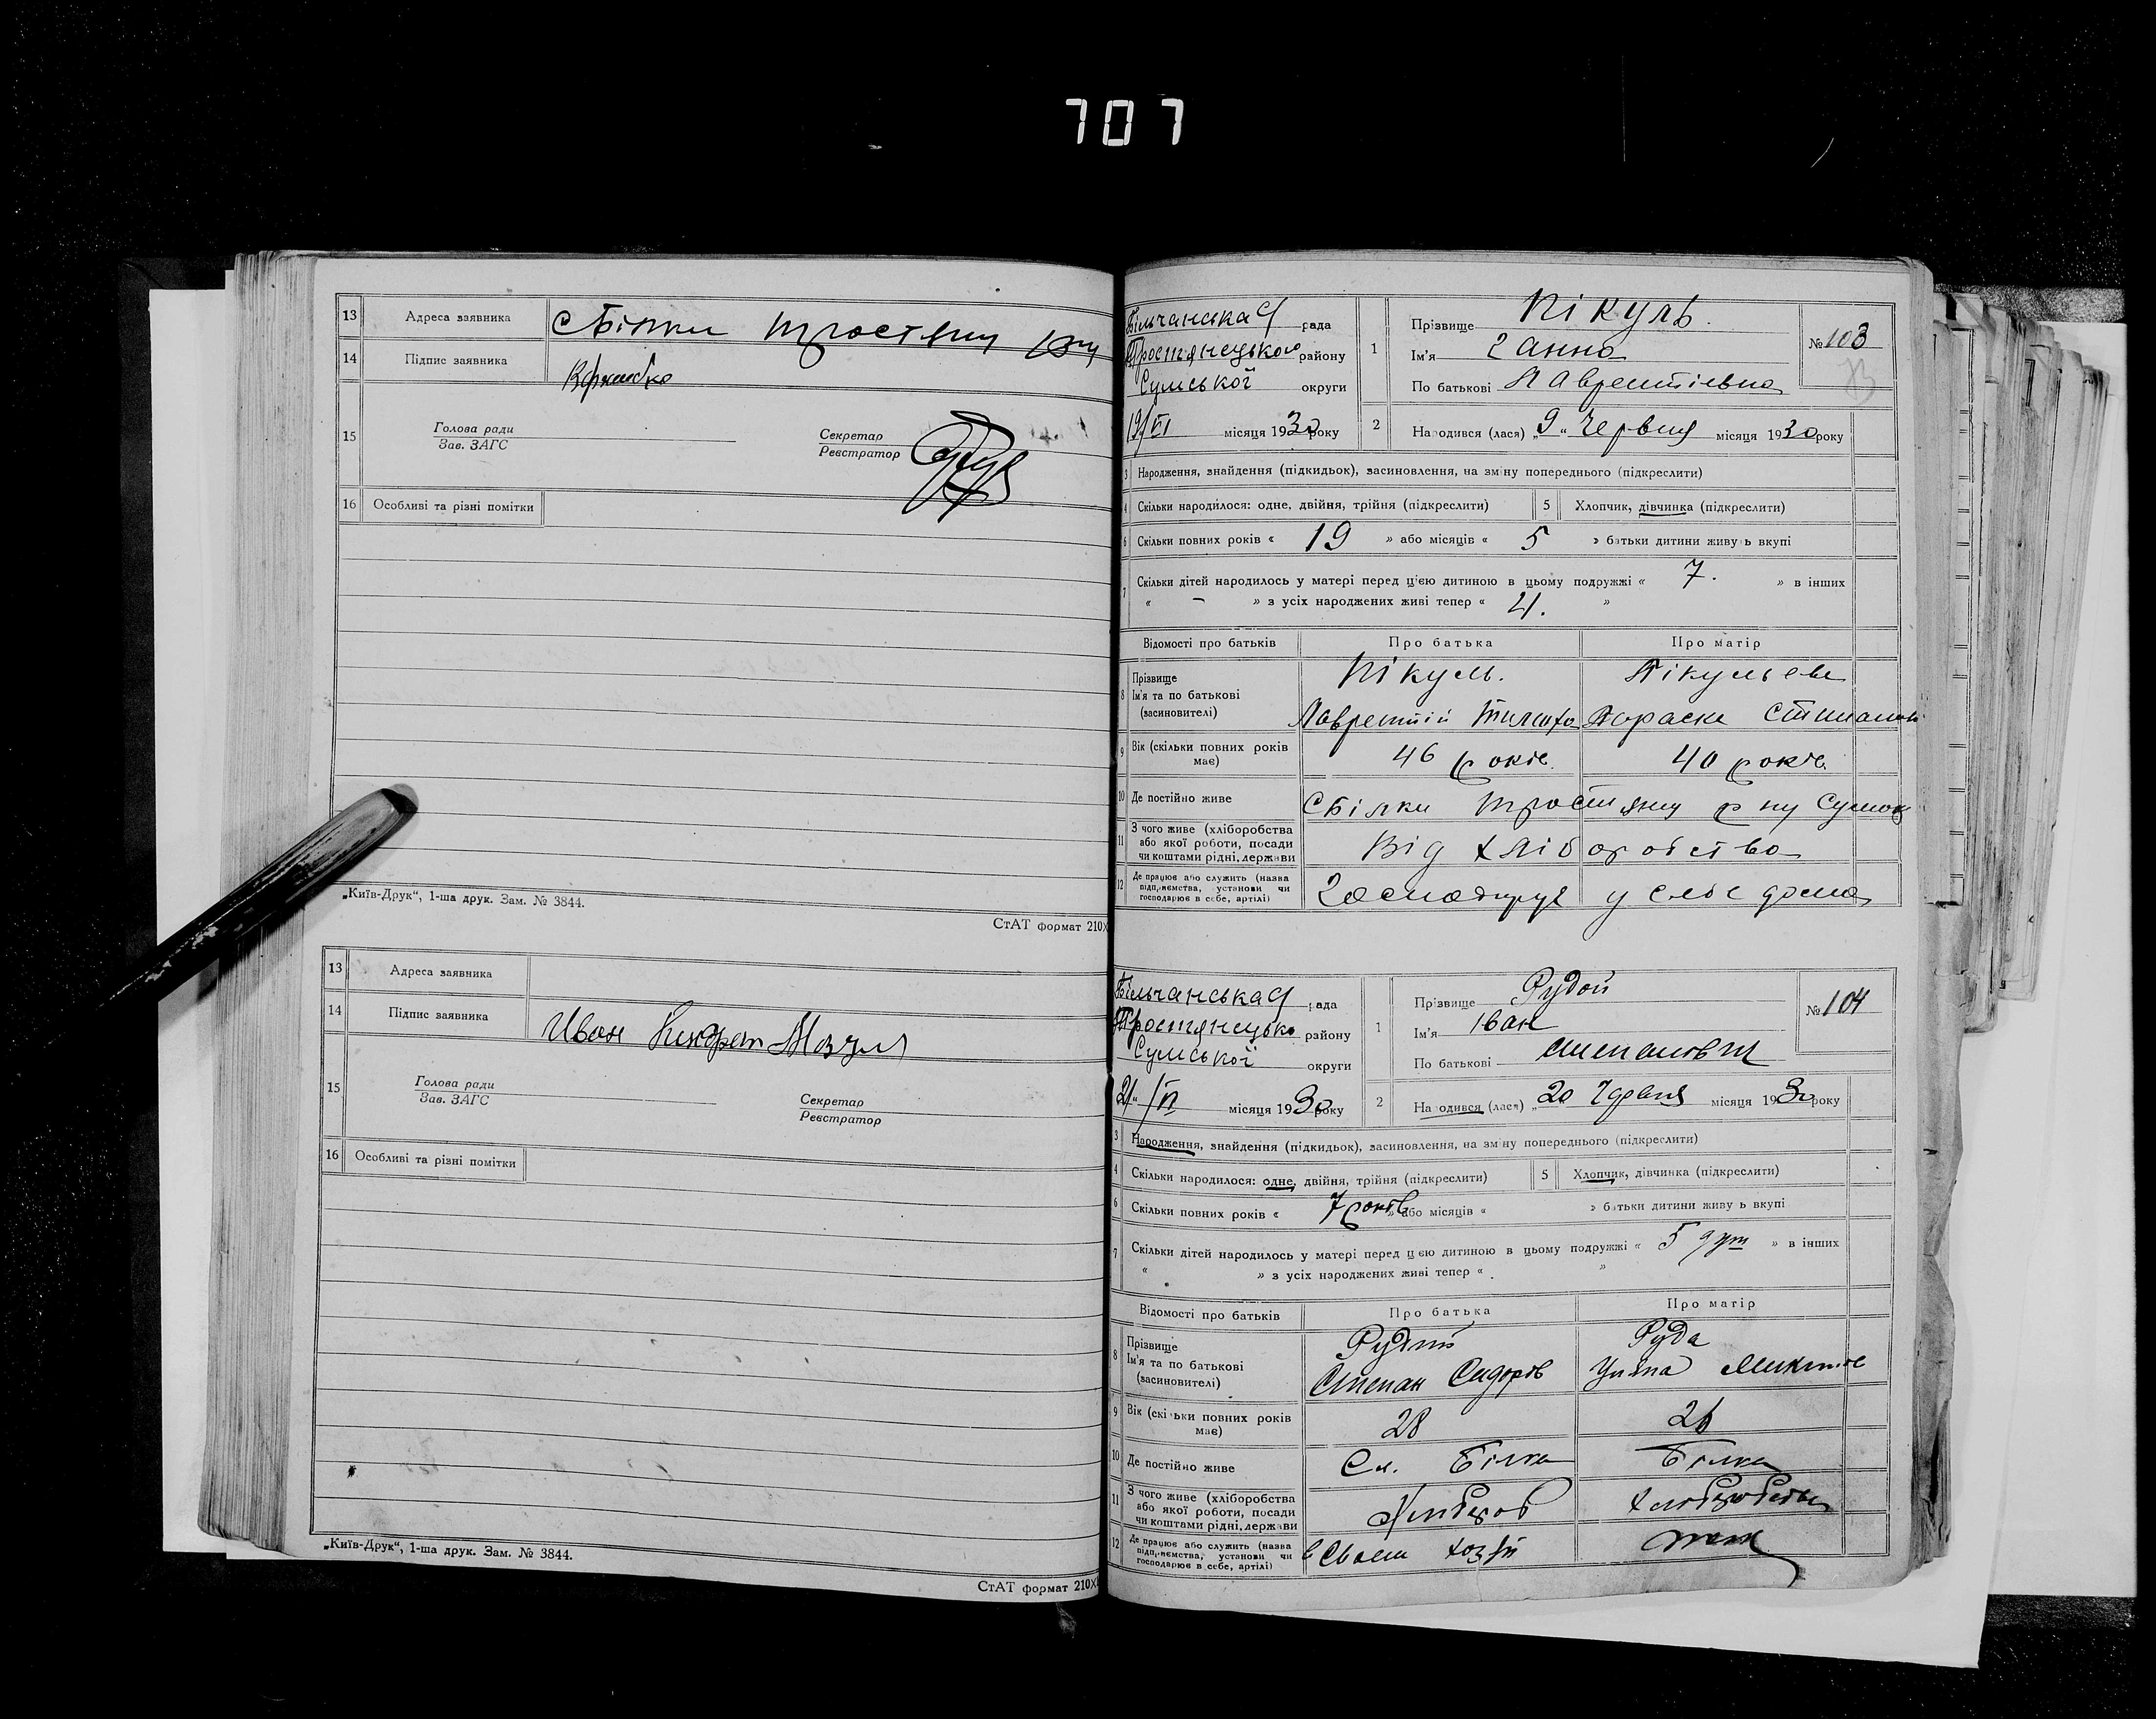 707
13 Адреса заявника с Білки Тростян
14 Підпис заявника
15 Голова ради
Зав. ЗАГС
Секретар
Реєстратор
16 Особливі та різні помітки
„Київ-Друк“, 1-ша друк. Зам. № 3844.
СтАТ формат 210×
13 Адреса заявника
14 Підпис заявника Иван
15 Голова ради
Зав. ЗАГС
Секретар
Реєстратор
16 Особливі та різні помітки
„Київ-Друк“, 1-ша друк. Зам. № 3844.
СтАТ формат 210×
Більчанська рада
Тростянецького району
Сумської округи
19/VI місяця 1930 року
1 Прізвище Пікуль.
Ім'я Ганна
По батькові Лаврентіевна
№ 103
2 Народився (лася) „9“ Червня місяця 1930 року
3 Народження, знайдення (підкидьок), засиновлення, на зміну попереднього (підкреслити)
4 Скільки народилося: одне, двійня, трійня (підкреслити) 5 Хлопчик, дівчинка (підкреслити)
6 Скільки повних років « 19 » або місяців « 5 » батьки дитини живуть вкупі
7 Скільки дітей народилось у матері перед цією дитиною в цьому подружжі « 7. » в інших
« – » з усіх народжених живі тепер « 4. »
Відомості про батьків Про батька Про матір
8 Прізвище
Ім'я та по батькові
(засиновителі)
Пікуль.
Лаврентій
Параска
9 Вік (скільки повних років має) 46 років 40 років
10 Де постійно живе с Білки Тростян
11 З чого живе (хліборобства або якої роботи, посади чи коштами рідні, держави Від хліборобства
12 Де працює або служить (назва підприємства, установи чи господарює в себе, артілі) у себе дома
Більчанська рада
Тростянецько району
Сумської округи
21/VI місяця 1930 року
1 Прізвище Рудой
Ім'я Іван
По батькові
№ 104
2 Народився (лася) „20 Червня місяця 1930 року
3 Народження, знайдення (підкидьок), засиновлення, на зміну попереднього (підкреслити)
4 Скільки народилося: одне, двійня, трійня (підкреслити) 5 Хлопчик, дівчинка (підкреслити)
6 Скільки повних років « 7 років » або місяців « » батьки дитини живуть вкупі
7 Скільки дітей народилось у матері перед цією дитиною в цьому подружжі « 5 » в інших
« » з усіх народжених живі тепер « »
Відомості про батьків Про батька Про матір
8 Прізвище
Ім'я та по батькові
(засиновителі)
Руда
Степан Сидоров
9 Вік (скільки повних років має) 28 26
10 Де постійно живе Сл. Білка Білка
11 З чого живе (хліборобства або якої роботи, посади чи коштами рідні, держави
12 Де працює або служить (назва підприємства, установи чи господарює в себе, артілі)